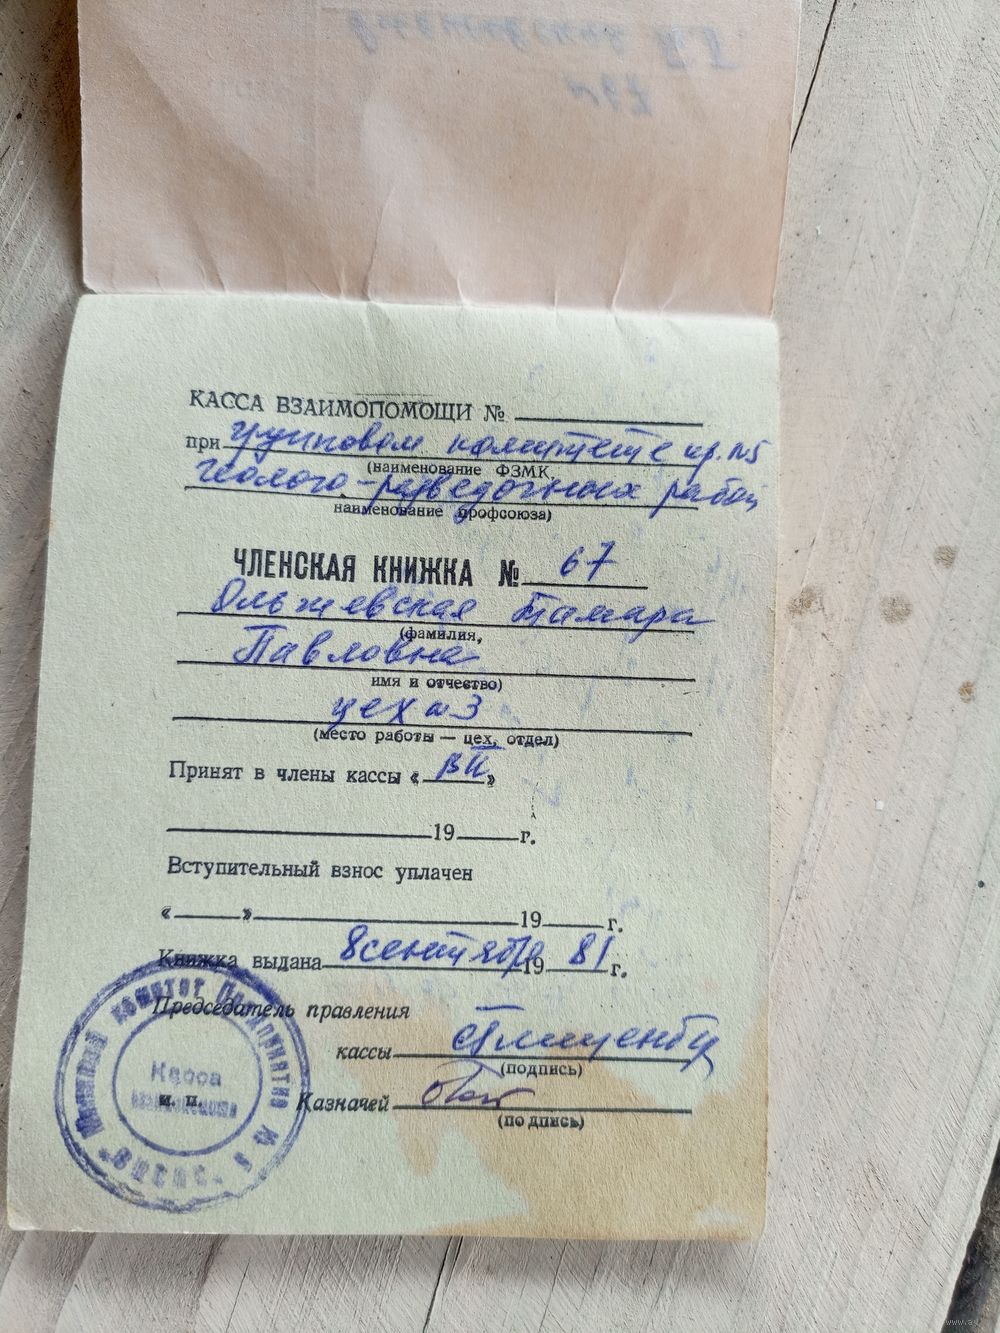 № 67
КАССА ВЗАИМОПОМОЩИ №
при групповом комитете пр. №5
(наименование ФЗМК,
геолого-разведочных работ
наименование профсоюза)
ЧЛЕНСКАЯ КНИЖКА № 67
Ольжевская Тамара
(фамилия,
Павловна
имя и отчество)
цех №3
(место работы — цех, отдел)
Принят в члены кассы « »
19 г.
Вступительный взнос уплачен
« » 19 г.
Книжка выдана 8 сентября 19 81 г.
Председатель правления
кассы
(подпись)
Казначей
(подпись)
комитет Предприятие № 5
Касса
взаимопомощи
м. п.